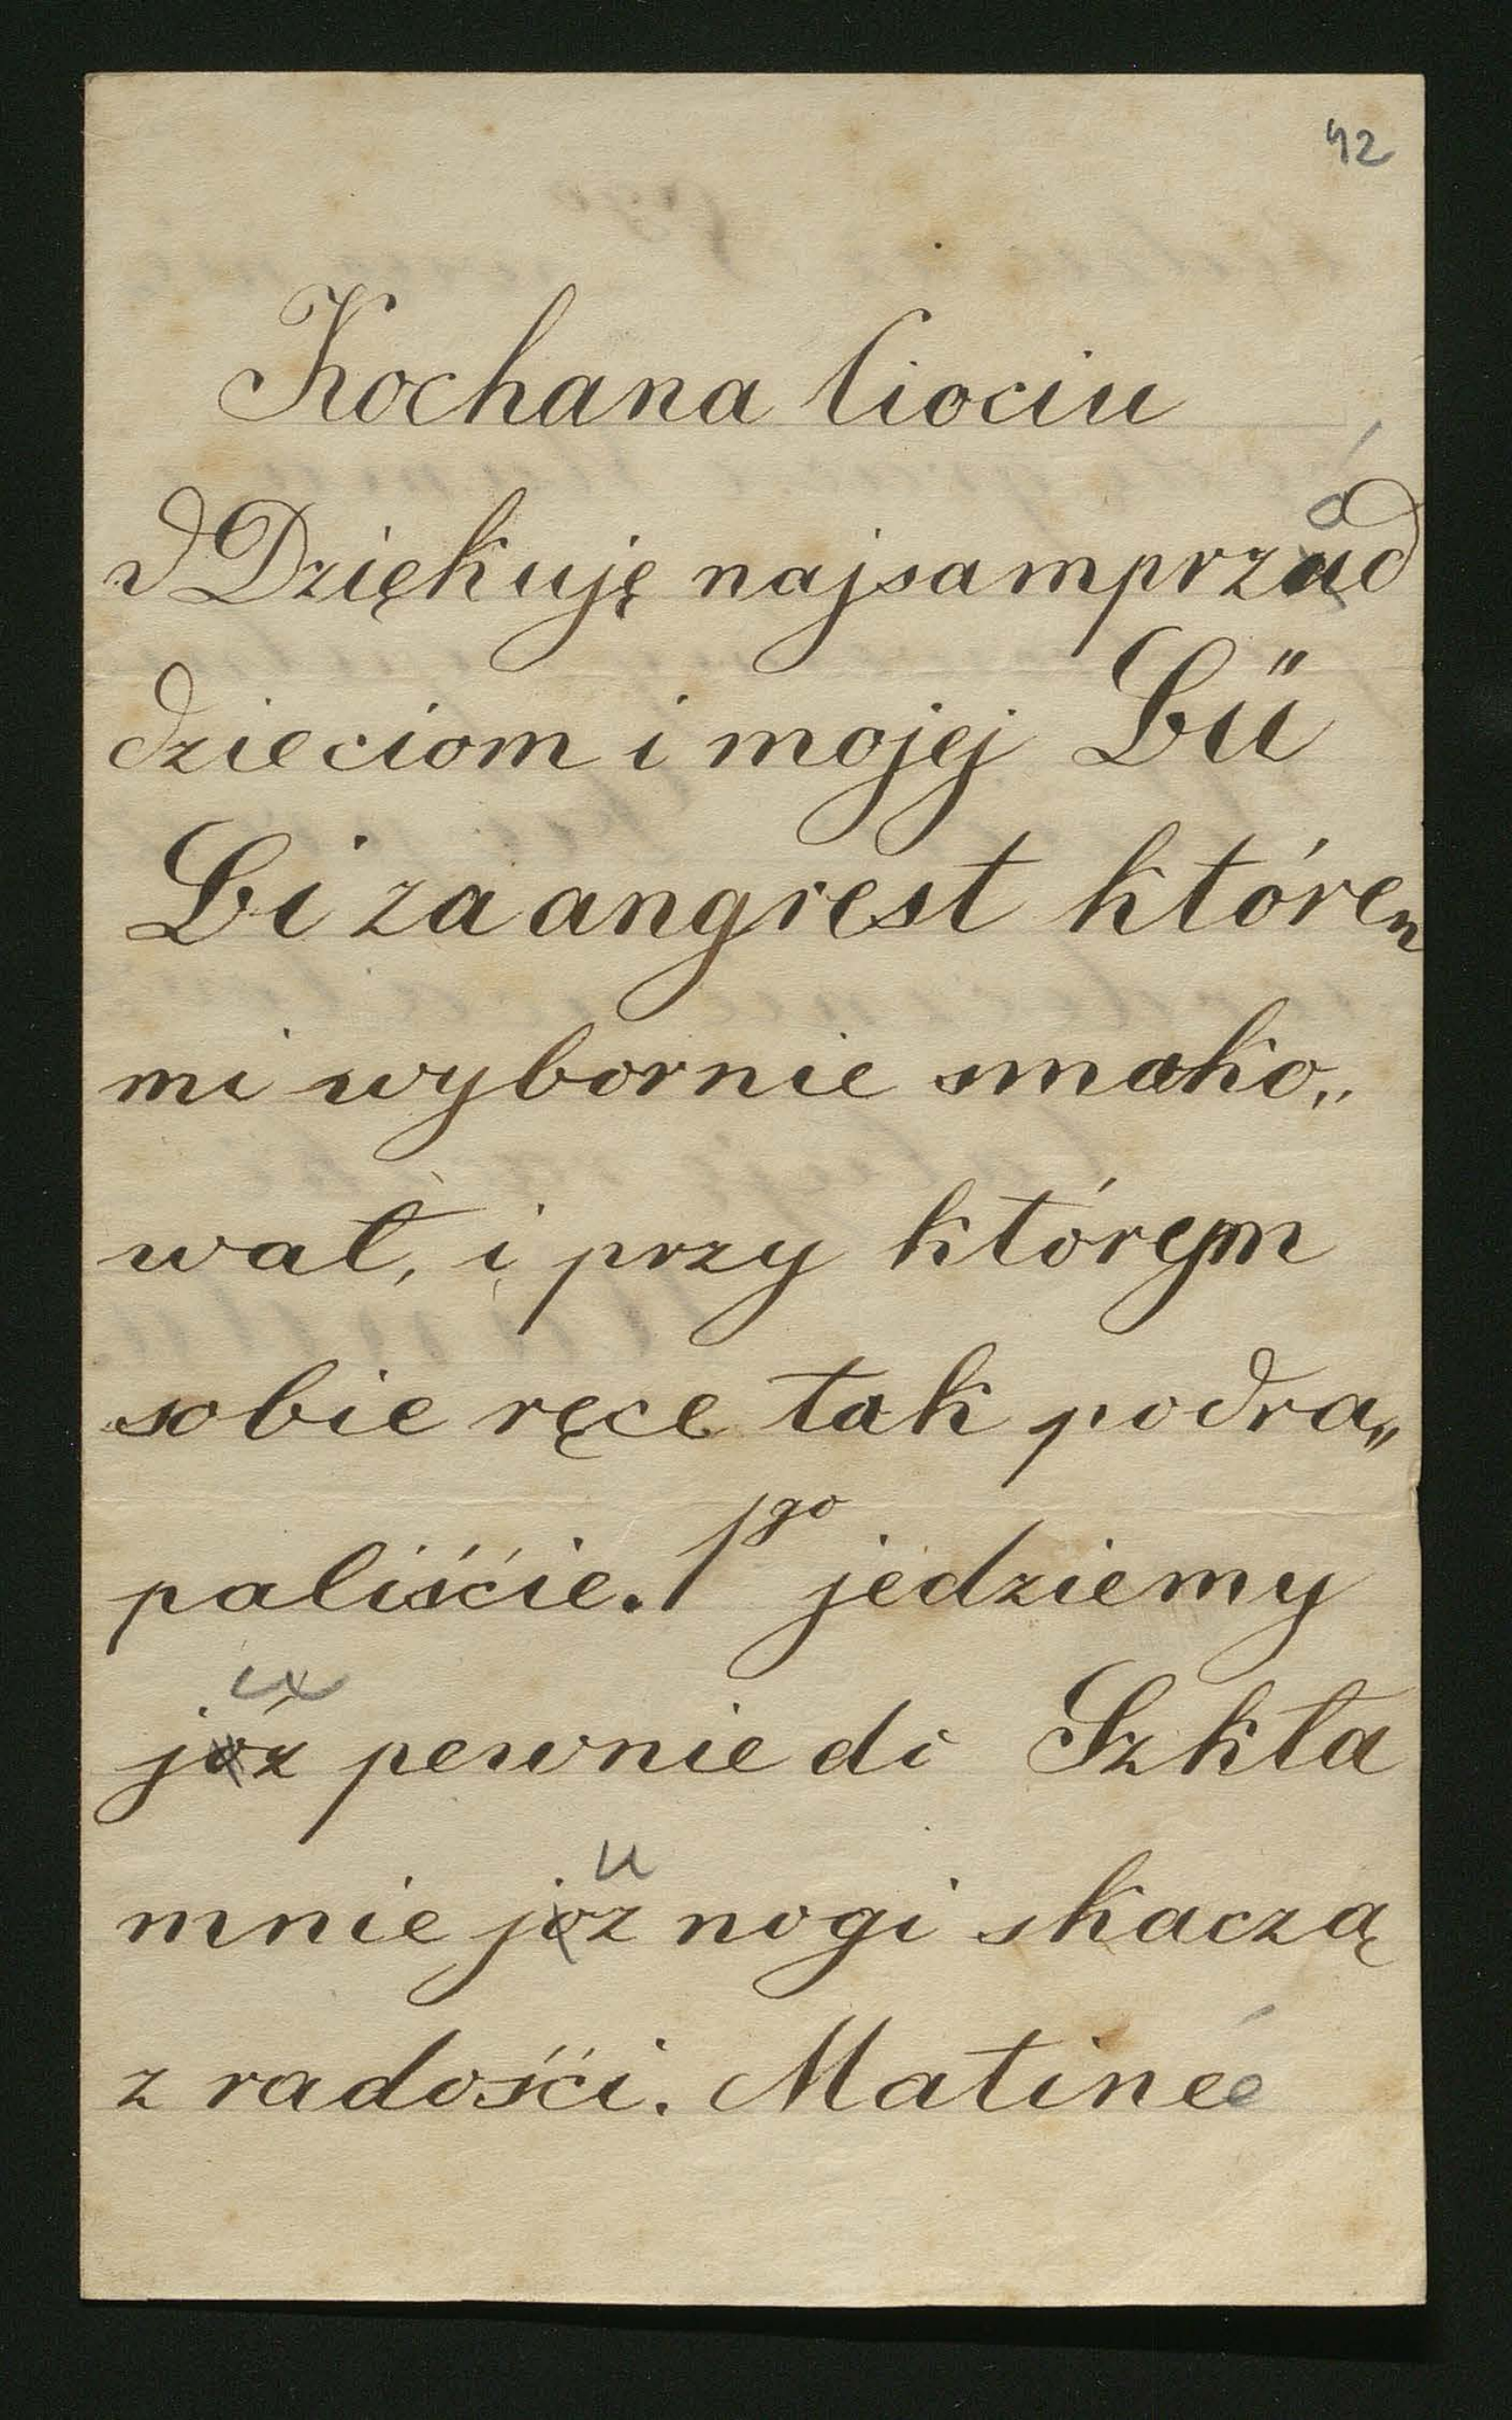 42
Kochana Ciociu
Dziękuję najsamprzód
dzieciom i mojej Lü
Li za angrest któren
mi wybornie smako„
wał, i przy którem
sobie ręce tak podra„
paliśćie. 1go jedziemy
u
józ pewnie do Szkła
u
mnie joz nogi skaczą
z radośći. Matinée